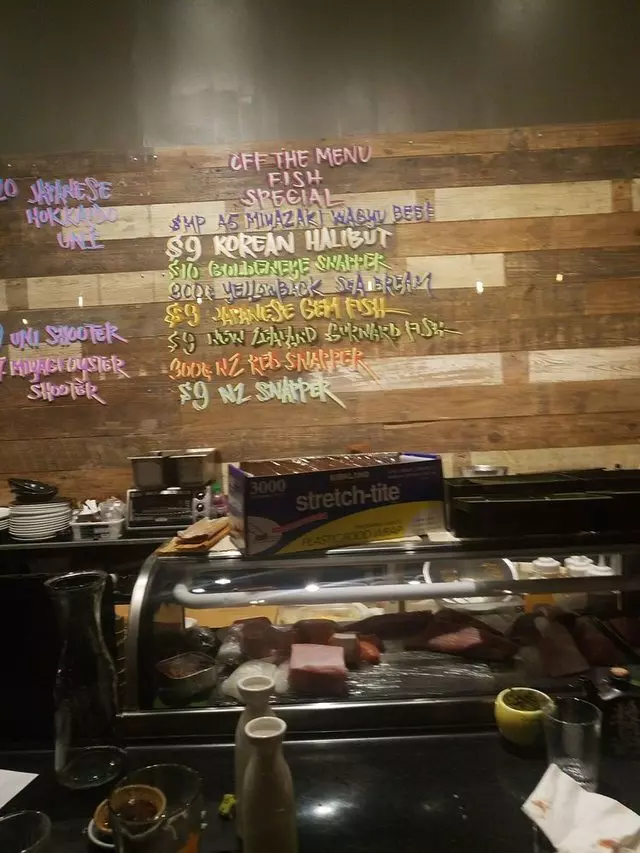 JAPANESE
HOKKAIDO
UNI
UNI SHOOTER
MIYAGI OYSTER
SHOOTER
OFF THE MENU
FISH
SPECIAL
$MP A5 MIYAZAKI WAGYU BEEF
$9 KOREAN HALIBUT
$10 GOLDENEYE SNAPPER
YELLOWBACK SEA BREAM
$9 JAPANESE GEM FISH
$9 NEW ZEALAND GURNARD FISH
NZ RED SNAPPER
$9 NZ SNAPPER
3000
KIRKLAND
stretch-tite
PLASTIC FOOD WRAP